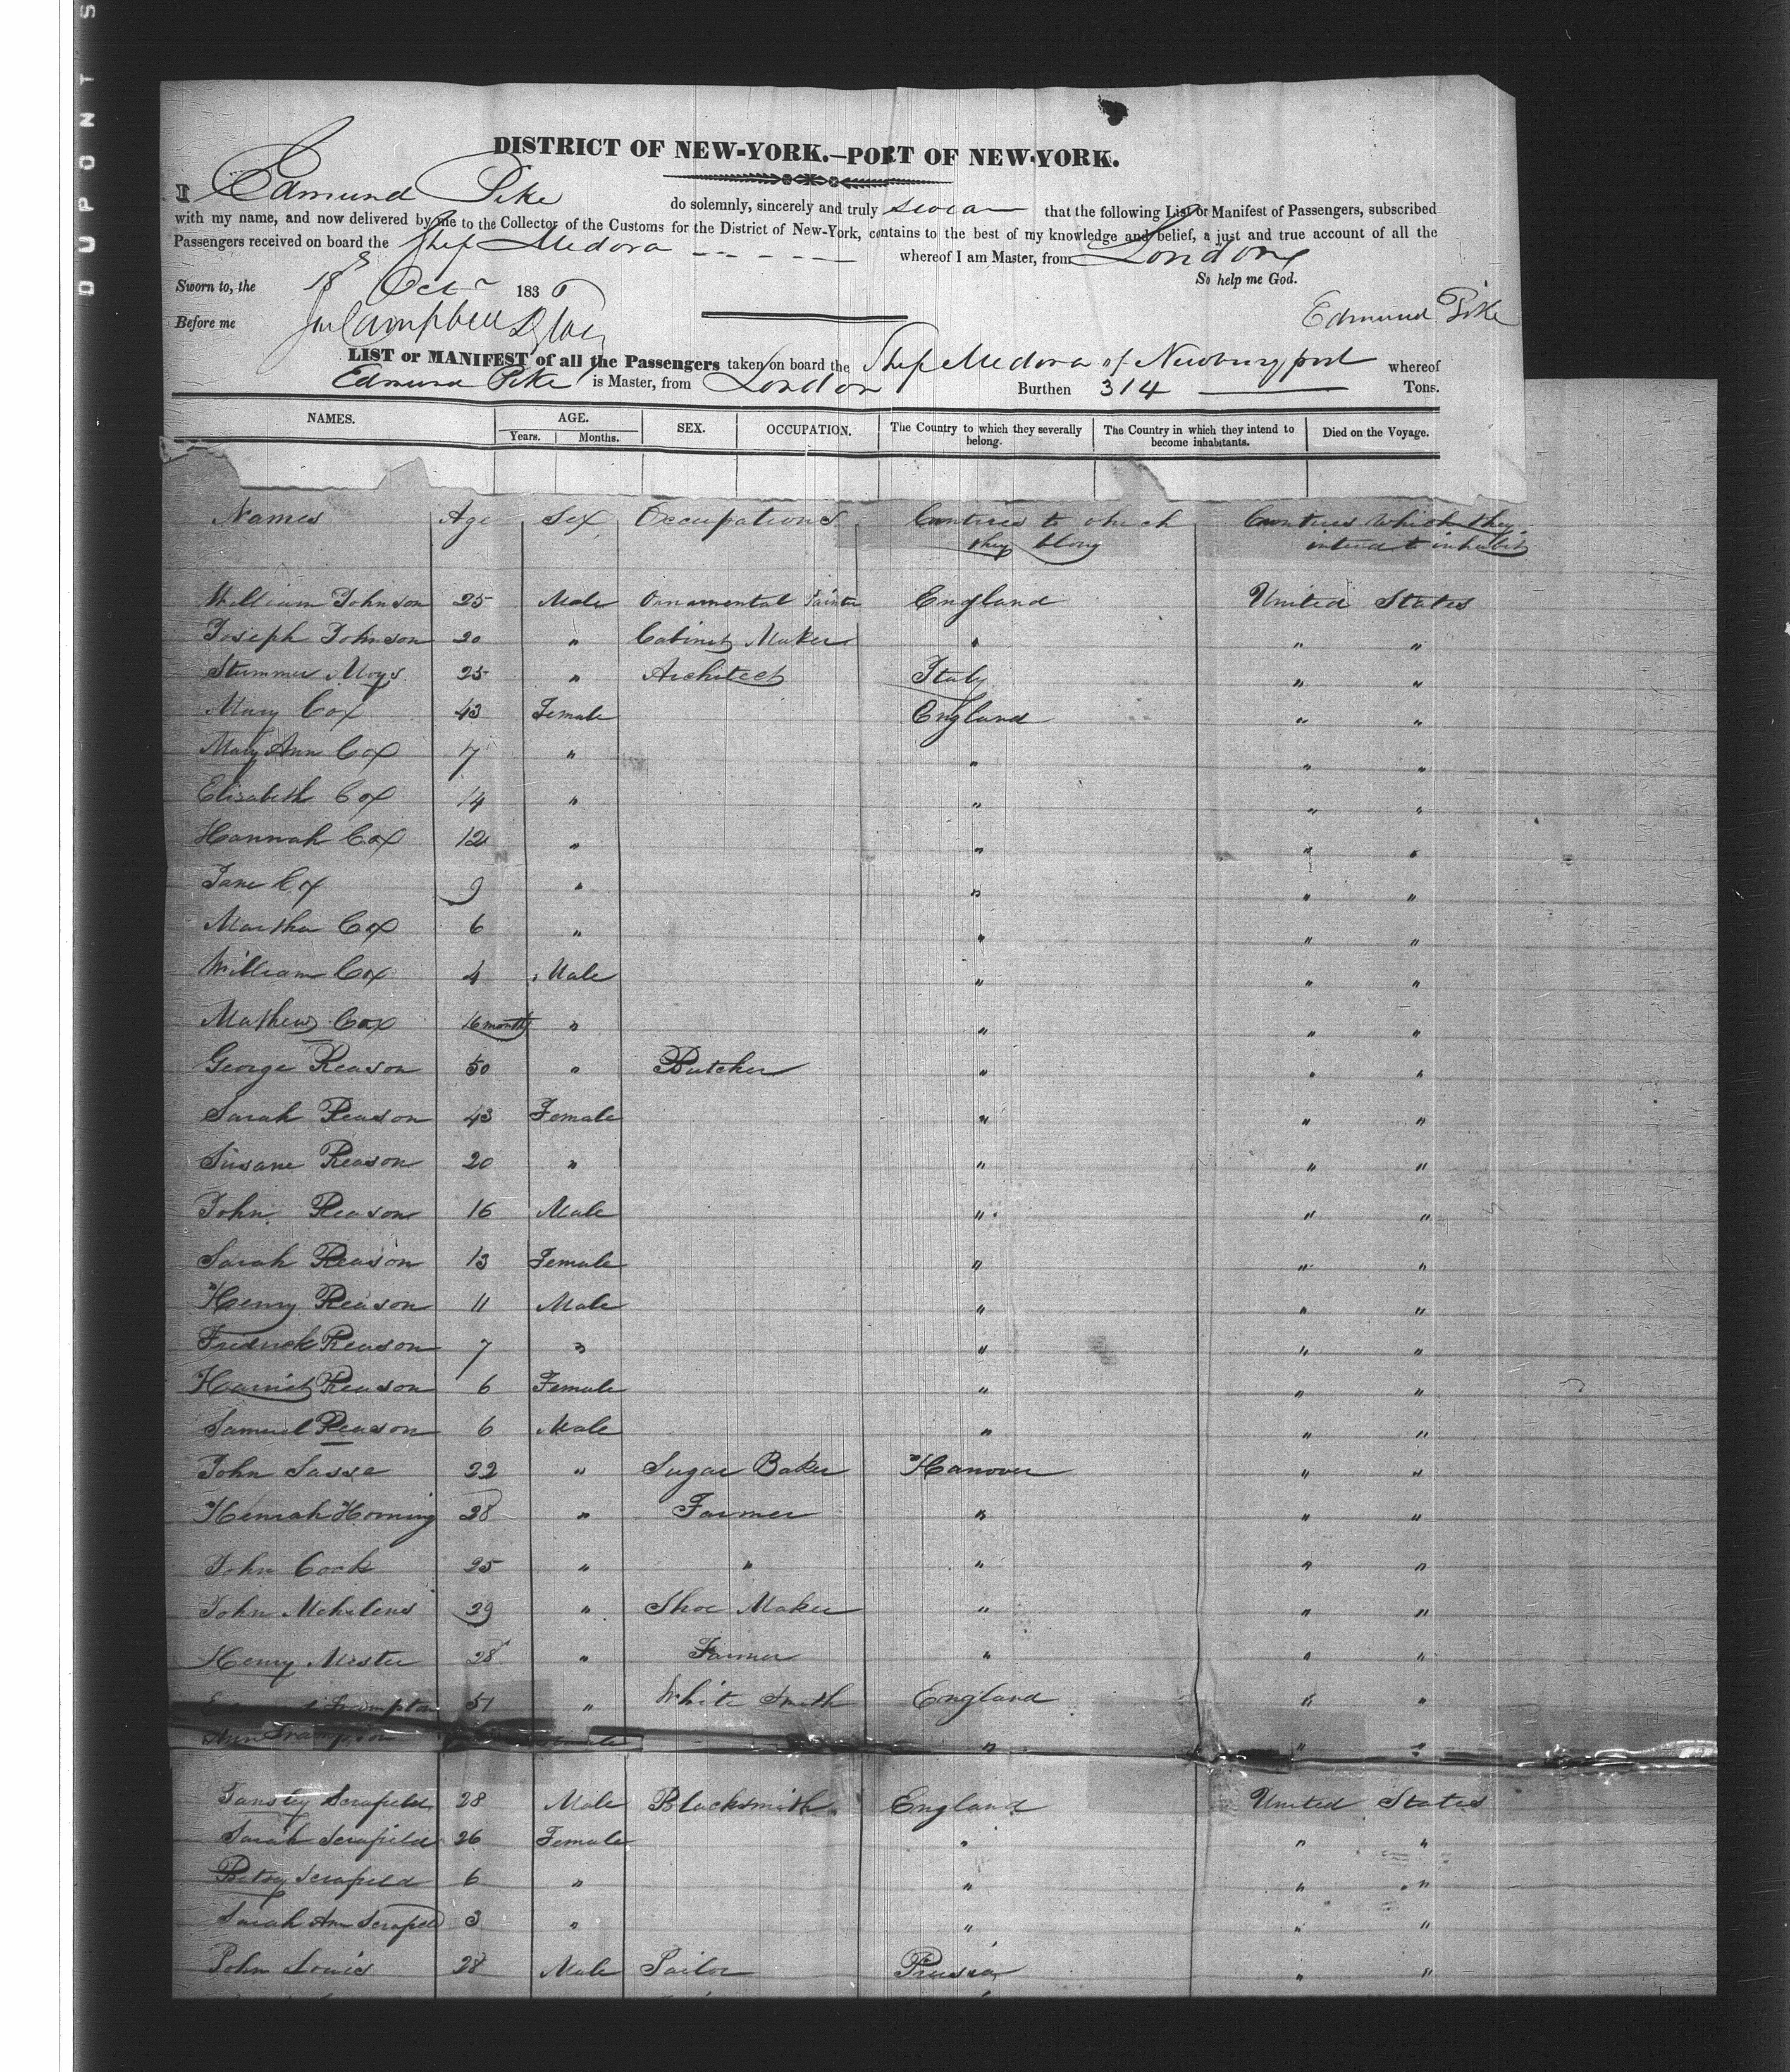 DUPONT S
DISTRICT OF NEW-YORK.—PORT OF NEW-YORK.
I Edmund Pike do solemnly, sincerely and truly swear that the following List or Manifest of Passengers, subscribed
with my name, and now delivered by me to the Collector of the Customs for the District of New-York, contains to the best of my knowledge and belief, a just and true account of all the
Passengers received on board the Ship Medora whereof I am Master, from London
So help me God.
Sworn to, the 18 Octr 1836
Edmund Pike
Before me Campbell
LIST or MANIFEST of all the Passengers taken on board the Ship Medora of Newburyport whereof
Edmund Pike is Master, from London Burthen 314 Tons.
NAMES. AGE. Years. Months. SEX. OCCUPATION. The Country to which they severally belong. The Country in which they intend to become inhabitants. Died on the Voyage.
Names Age Sex Occupations Countries to which they blong Countries which they intend to inhabit
William Johnson 25 Male Ornamental Painter England United States
Joseph Johnson 20 " Cabinet Maker " " "
Stummer Moys 25 " Architect Italy " "
Mary Cox 43 Female England " "
Mary Ann Cox 17 " " " "
Elisabeth Cox 14 " " " "
Hannah Cox 12 " " " "
Jane Cox 9 " " " "
Martha Cox 6 " " " "
William Cox 4 Male " " "
Mathew Cox 16 months " " " "
George Reason 50 " Butcher " " "
Sarah Reason 43 Female " " "
Susane Reason 20 " " " "
John Reason 16 Male " " "
Sarah Reason 13 Female " " "
Henry Reason 11 Male " " "
Fredrick Reason 7 " " " "
Harriet Reason 6 Female " " "
Samuel Reason 6 Male " " "
John Sasse 22 " Sugar Baker Hanover " "
Henrah Horning 28 " Farmer " " "
John Cook 25 " " " " "
John Mehilens 29 " Shoe Maker " " "
Henry Mester 28 " Farmer " " "
Frampton 51 " White Smith England " "
Ann Frampton Female " " "
Tansley Scrafield 28 Male Blacksmith England United States
Sarah Scrafield 26 Female " " "
Betsy Scrafield 6 " " " "
Sarah Ann Scrafield 3 " " " "
John Louis 28 Male Sailor Prussia " "